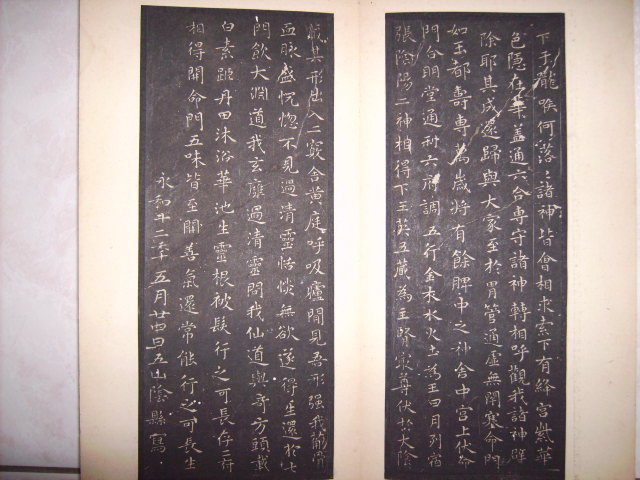 下于嚨喉何落落諸神皆會相求索下有絳宮紫華
色隱在華蓋通六合專守諸神轉相呼觀我諸神辟
除耶其成還歸與大家至於胃管通虛無閉塞命門
如玉都壽專萬歲將有餘脾中之神舍中宮上伏命
門合明堂通利六府調五行金木水火土為王日月列宿
張陰陽二神相得下玉英五藏為主腎最尊伏於大陰
藏其形出入二竅舍黃庭呼吸廬間見吾形强我筋骨
血脉盛怳惚不見過清靈恬惔無欲遂得生還於七
門飲大淵道我玄雍過清靈問我仙道與奇方頭載
白素距丹田沐浴華池生靈根被髮行之可長存二府
相得開命門五味皆至開善氣還常能行之可長生
永和十二年五月廿四日五山陰縣寫